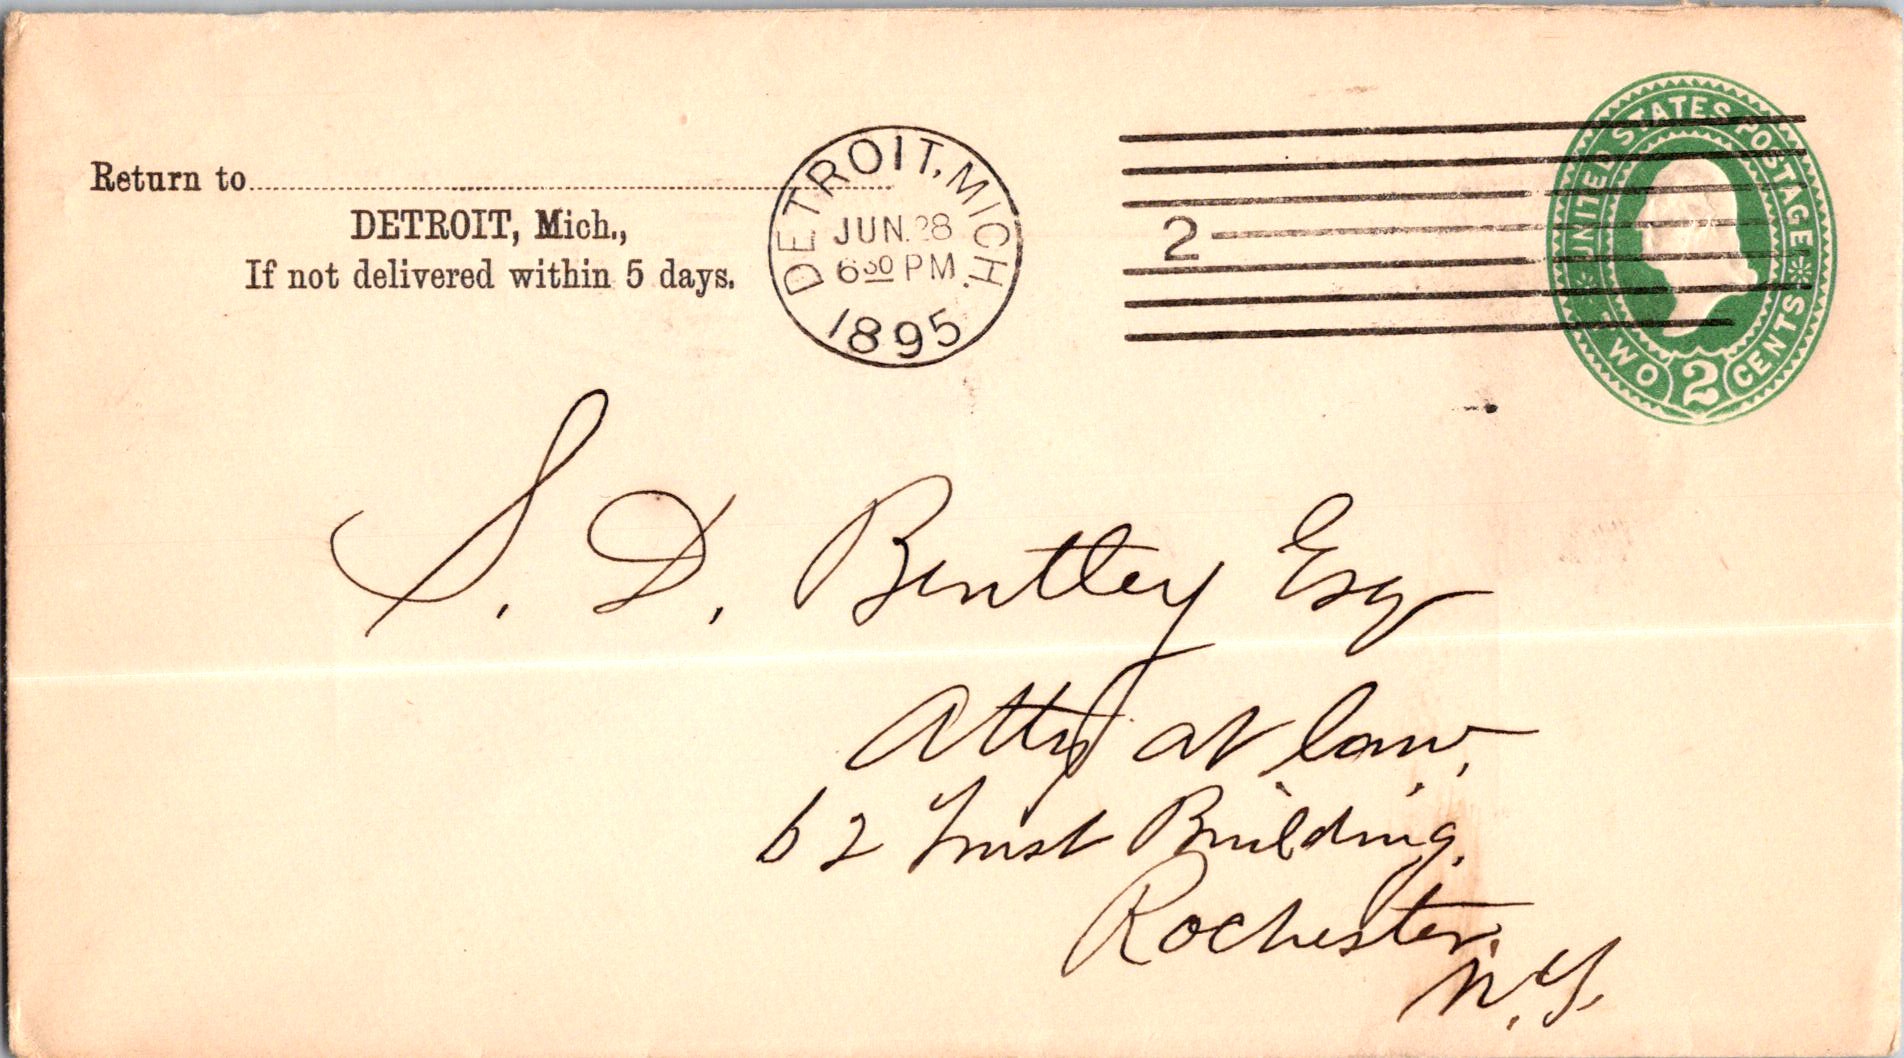 Return to
DETROIT, Mich.,
If not delivered within 5 days.
DETROIT, MICH.
JUN. 28
6 30 PM
1895
2
UNITED STATES POSTAGE
TWO 2 CENTS
S. D. Bentley Esq
Atty at law,
62 Trust Building,
Rochester.
N.Y.